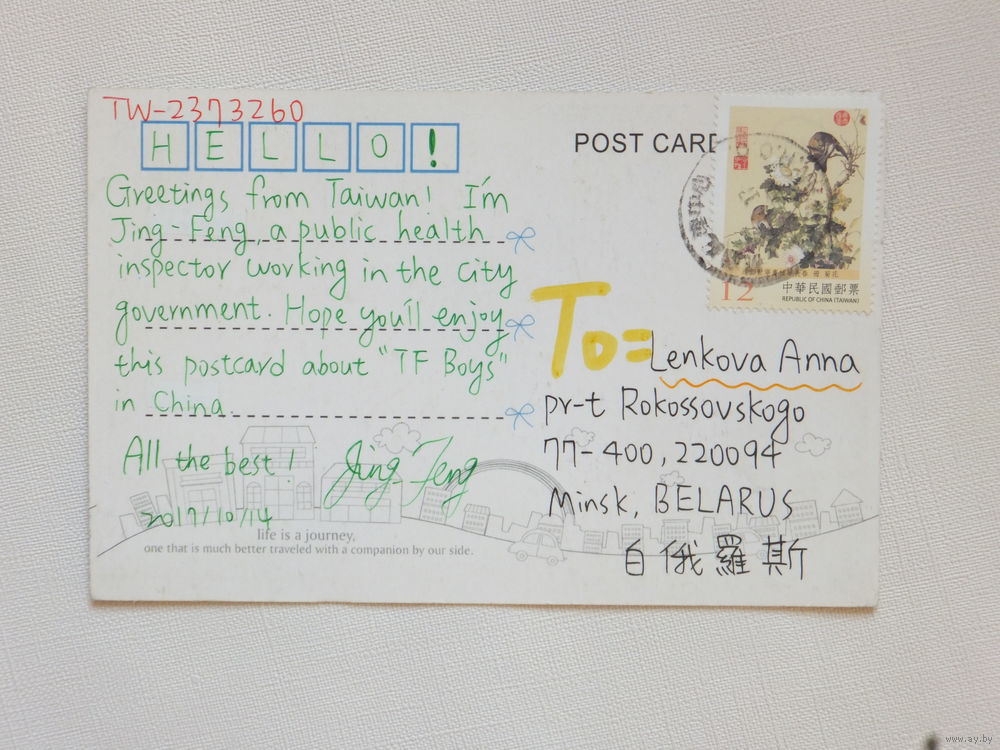 TW-2373260
HELLO!
Greetings from Taiwan! I'm
Jing-Feng, a public health
inspector working in the city
government. Hope you'll enjoy
this postcard about "TF Boys"
in China.
All the best! Jing-Feng
2017/10/14
life is a journey,
one that is much better traveled with a companion by our side.
POST CARD
12
中華民國郵票
REPUBLIC OF CHINA (TAIWAN)
To=Lenkova Anna
pr-t Rokossovskogo
77-400, 220094
Minsk, BELARUS
白俄羅斯
www.ay.by